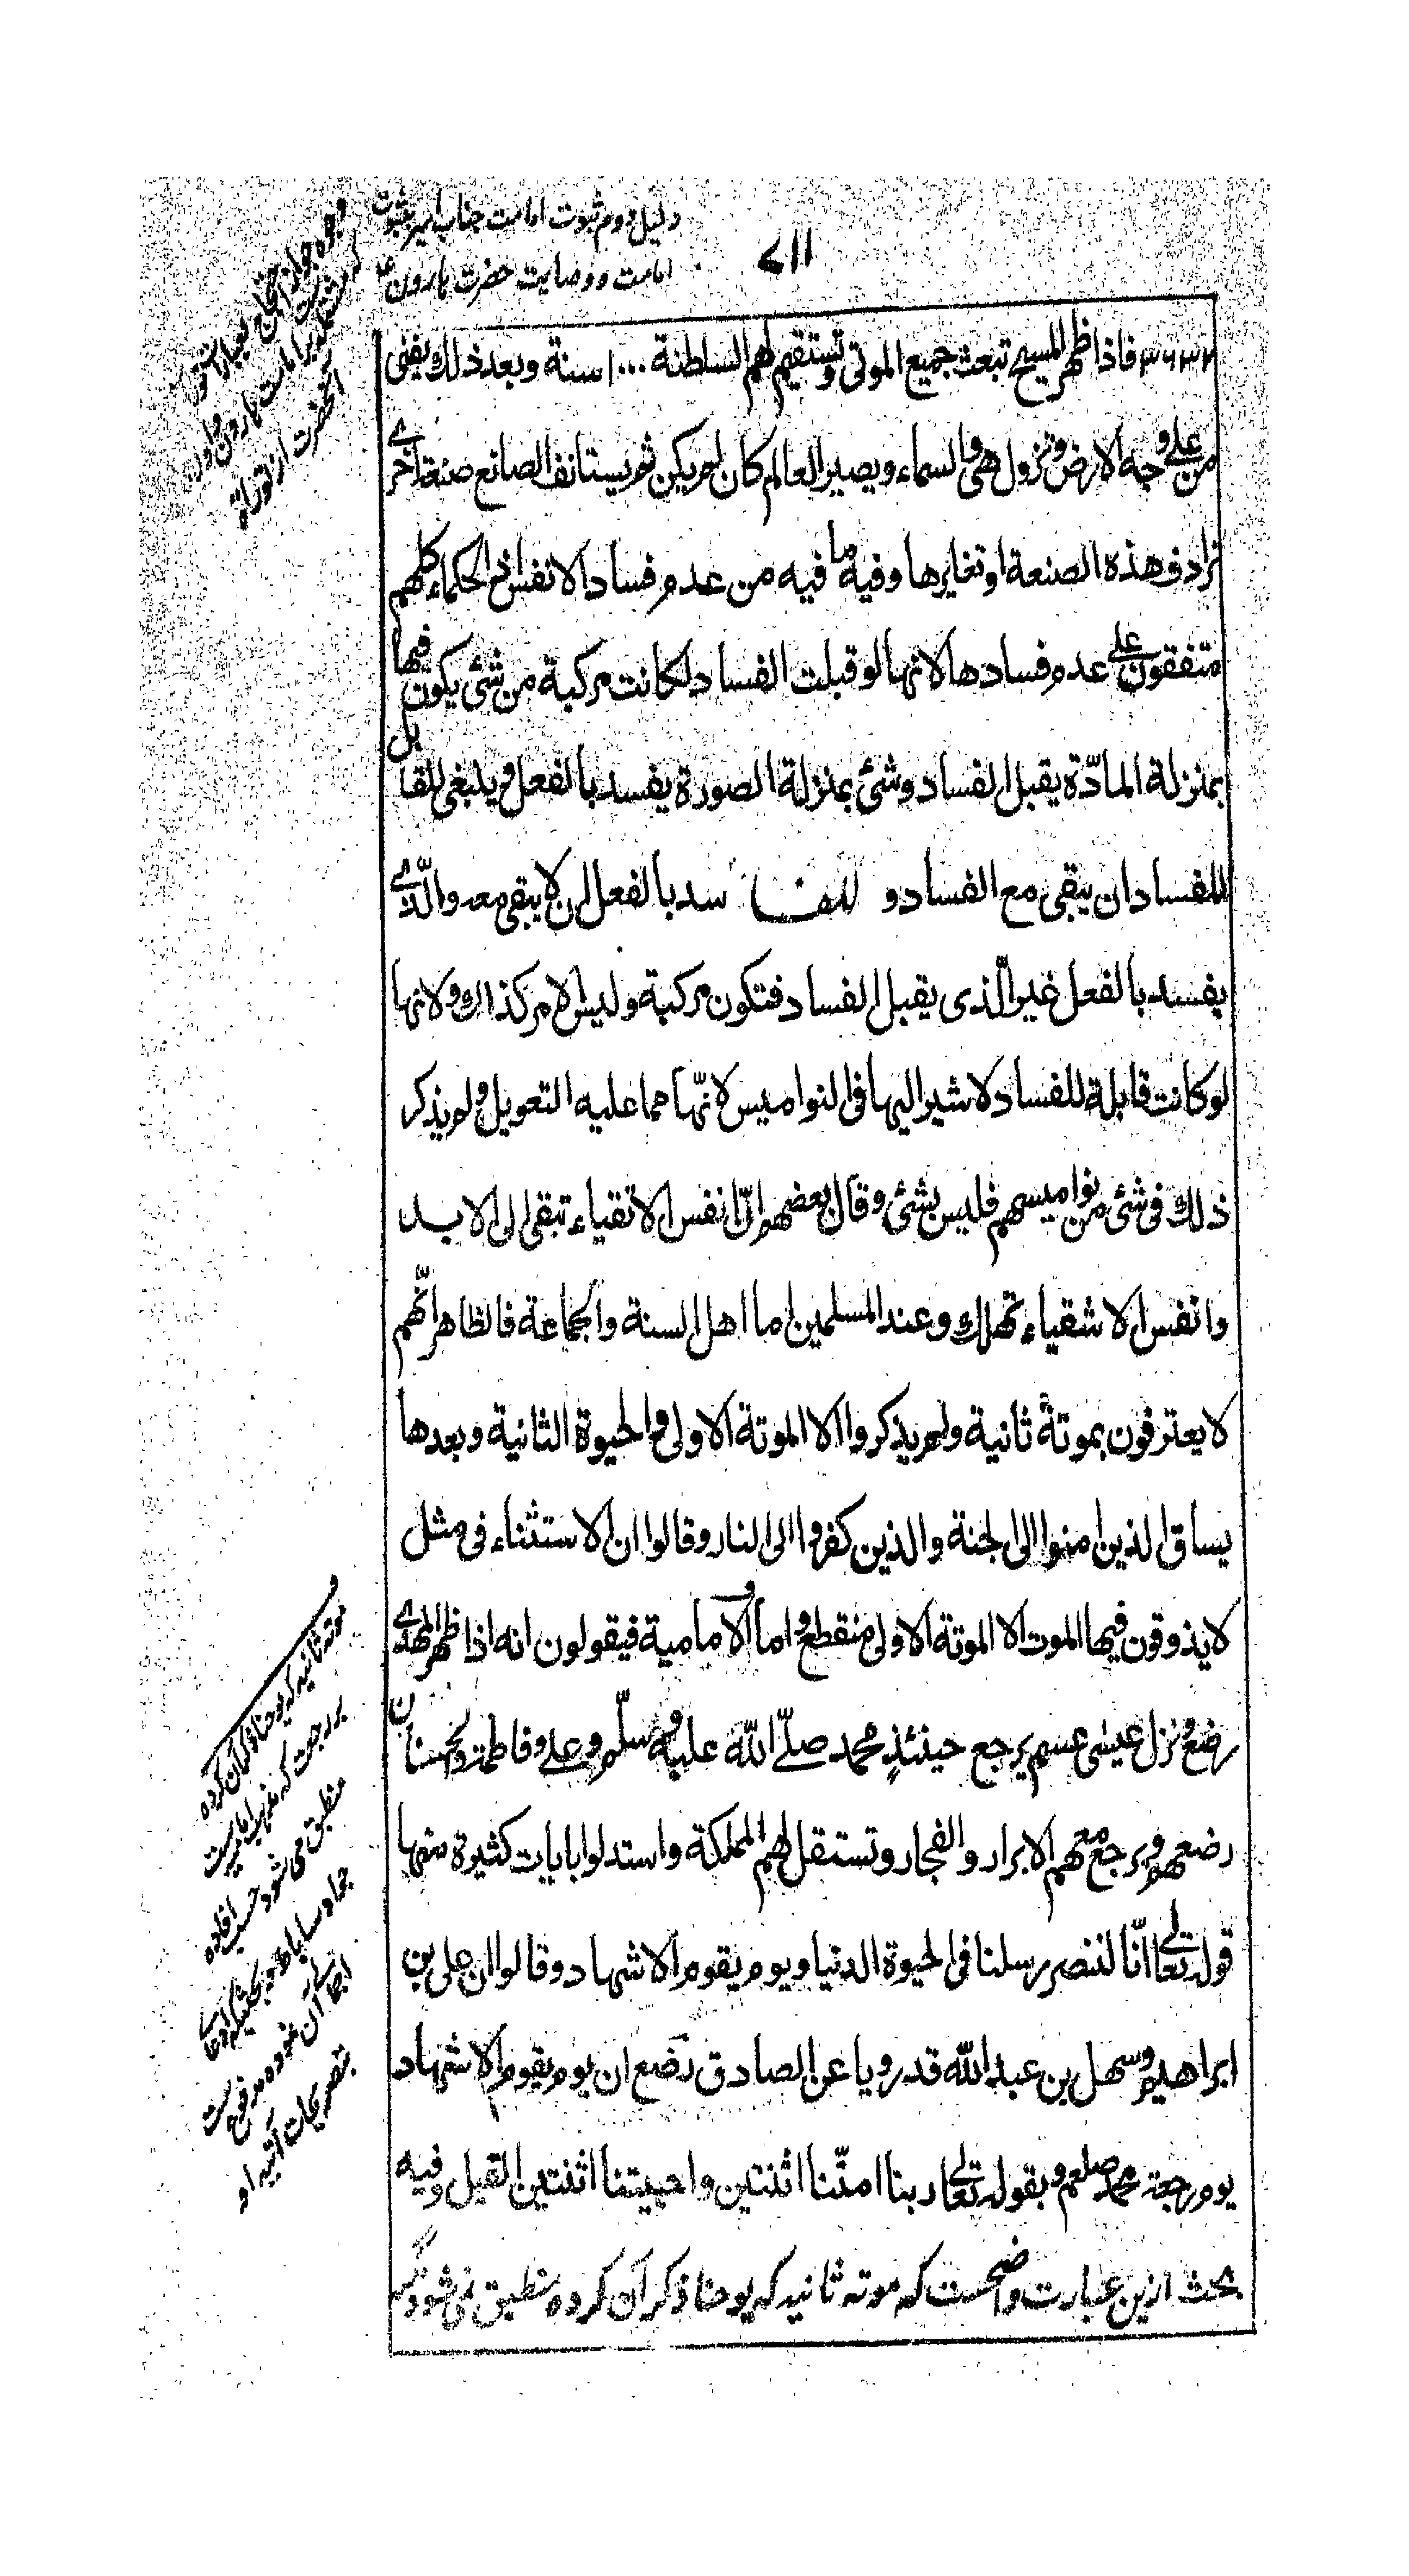 دلیل دوم ثبوت امامت جناب امیر بثبوت
امامت و وصایت حضرت هارون ع
۷۱۱
فاذا ظهر المسیح تبعث جمیع الموتی و تستقیم لهم السلطنة ۱۰۰۰ سنة و بعد ذلک یفنی
من علی وجه الارض و تزول هی و السماء و یصیر العالم کان لم یکن ثم یستانف الصانع صنعة اخری
ترادف هذه الصنعة او تغایرها و فیه ما فیه من عدم فساد الانفس اذ الحکماء کلهم
متفقون علی عدم فسادها لانها لو قبلت الفساد لکانت مرکبة من شئ یکون فیها
بمنزلة المادّة یقبل الفساد و شئ بمنزلة الصورة یفسد بالفعل و ینبغی للقابل
للفساد ان یبقی مع الفساد و للفاسد بالفعل ان لا یبقی معه و الّذی
یفسد بالفعل غیر الّذی یقبل الفساد فتکون مرکبة و لیس الامر کذلک و لانها
لو کانت قابلة للفساد لاشیر الیها فی النوامیس لانّها مما علیه التعویل و لم یذکر
ذلک فی شئ من نوامیسهم فلیس بشئ و قال بعضهم انّ انفس الاتقیاء تبقی الی الابد
و انفس الاشقیاء تهلک و عند المسلمین اما اهل السنة و الجماعة فالظاهر انّهم
لا یعترفون بموتة ثانیة و لم یذکروا الا الموتة الاولی و الحیوة الثانیة و بعدها
یساق الذین امنوا الی الجنة و الذین کفروا الی النار و قالوا ان الاستثناء فی مثل
لا یذوقون فیها الموت الا الموتة الاولی منقطع و اما الامامیة فیقولون انه اذا ظهر المهدی
رضع و نزل عیسی عسم یرجع حینئذٍ محمد صلّی الله علیه و سلّم و علی و فاطمة و الحسنان
رضعهم و یرجع معهم الابرار و الفجار و تستقل لهم المملکة و استدلوا بایات کثیرة منها
قوله تعالی انّا لننصر رسلنا فی الحیوة الدنیا و یوم یقوم الاشهاد و قالوا ان علی بن
ابراهیم و سهل بن عبد الله قد رویا عن الصادق رضع ان یوم یقوم الاشهاد
یوم رجعة محمد صلعم و بقوله تعالی ربنا امتّنا اثنتین و احییتنا اثنتین القیل و فیه
بحث ازین عبارت واضحست که موته ثانیه که یوحنا ذکر آن کرده منطبق نمی شود مگر
موته ثانیه که یوحنا ذکر آن کرده
بر رجعت که مذهب امامیه است
منطبق می شود حسب افاده
جواد ساباط